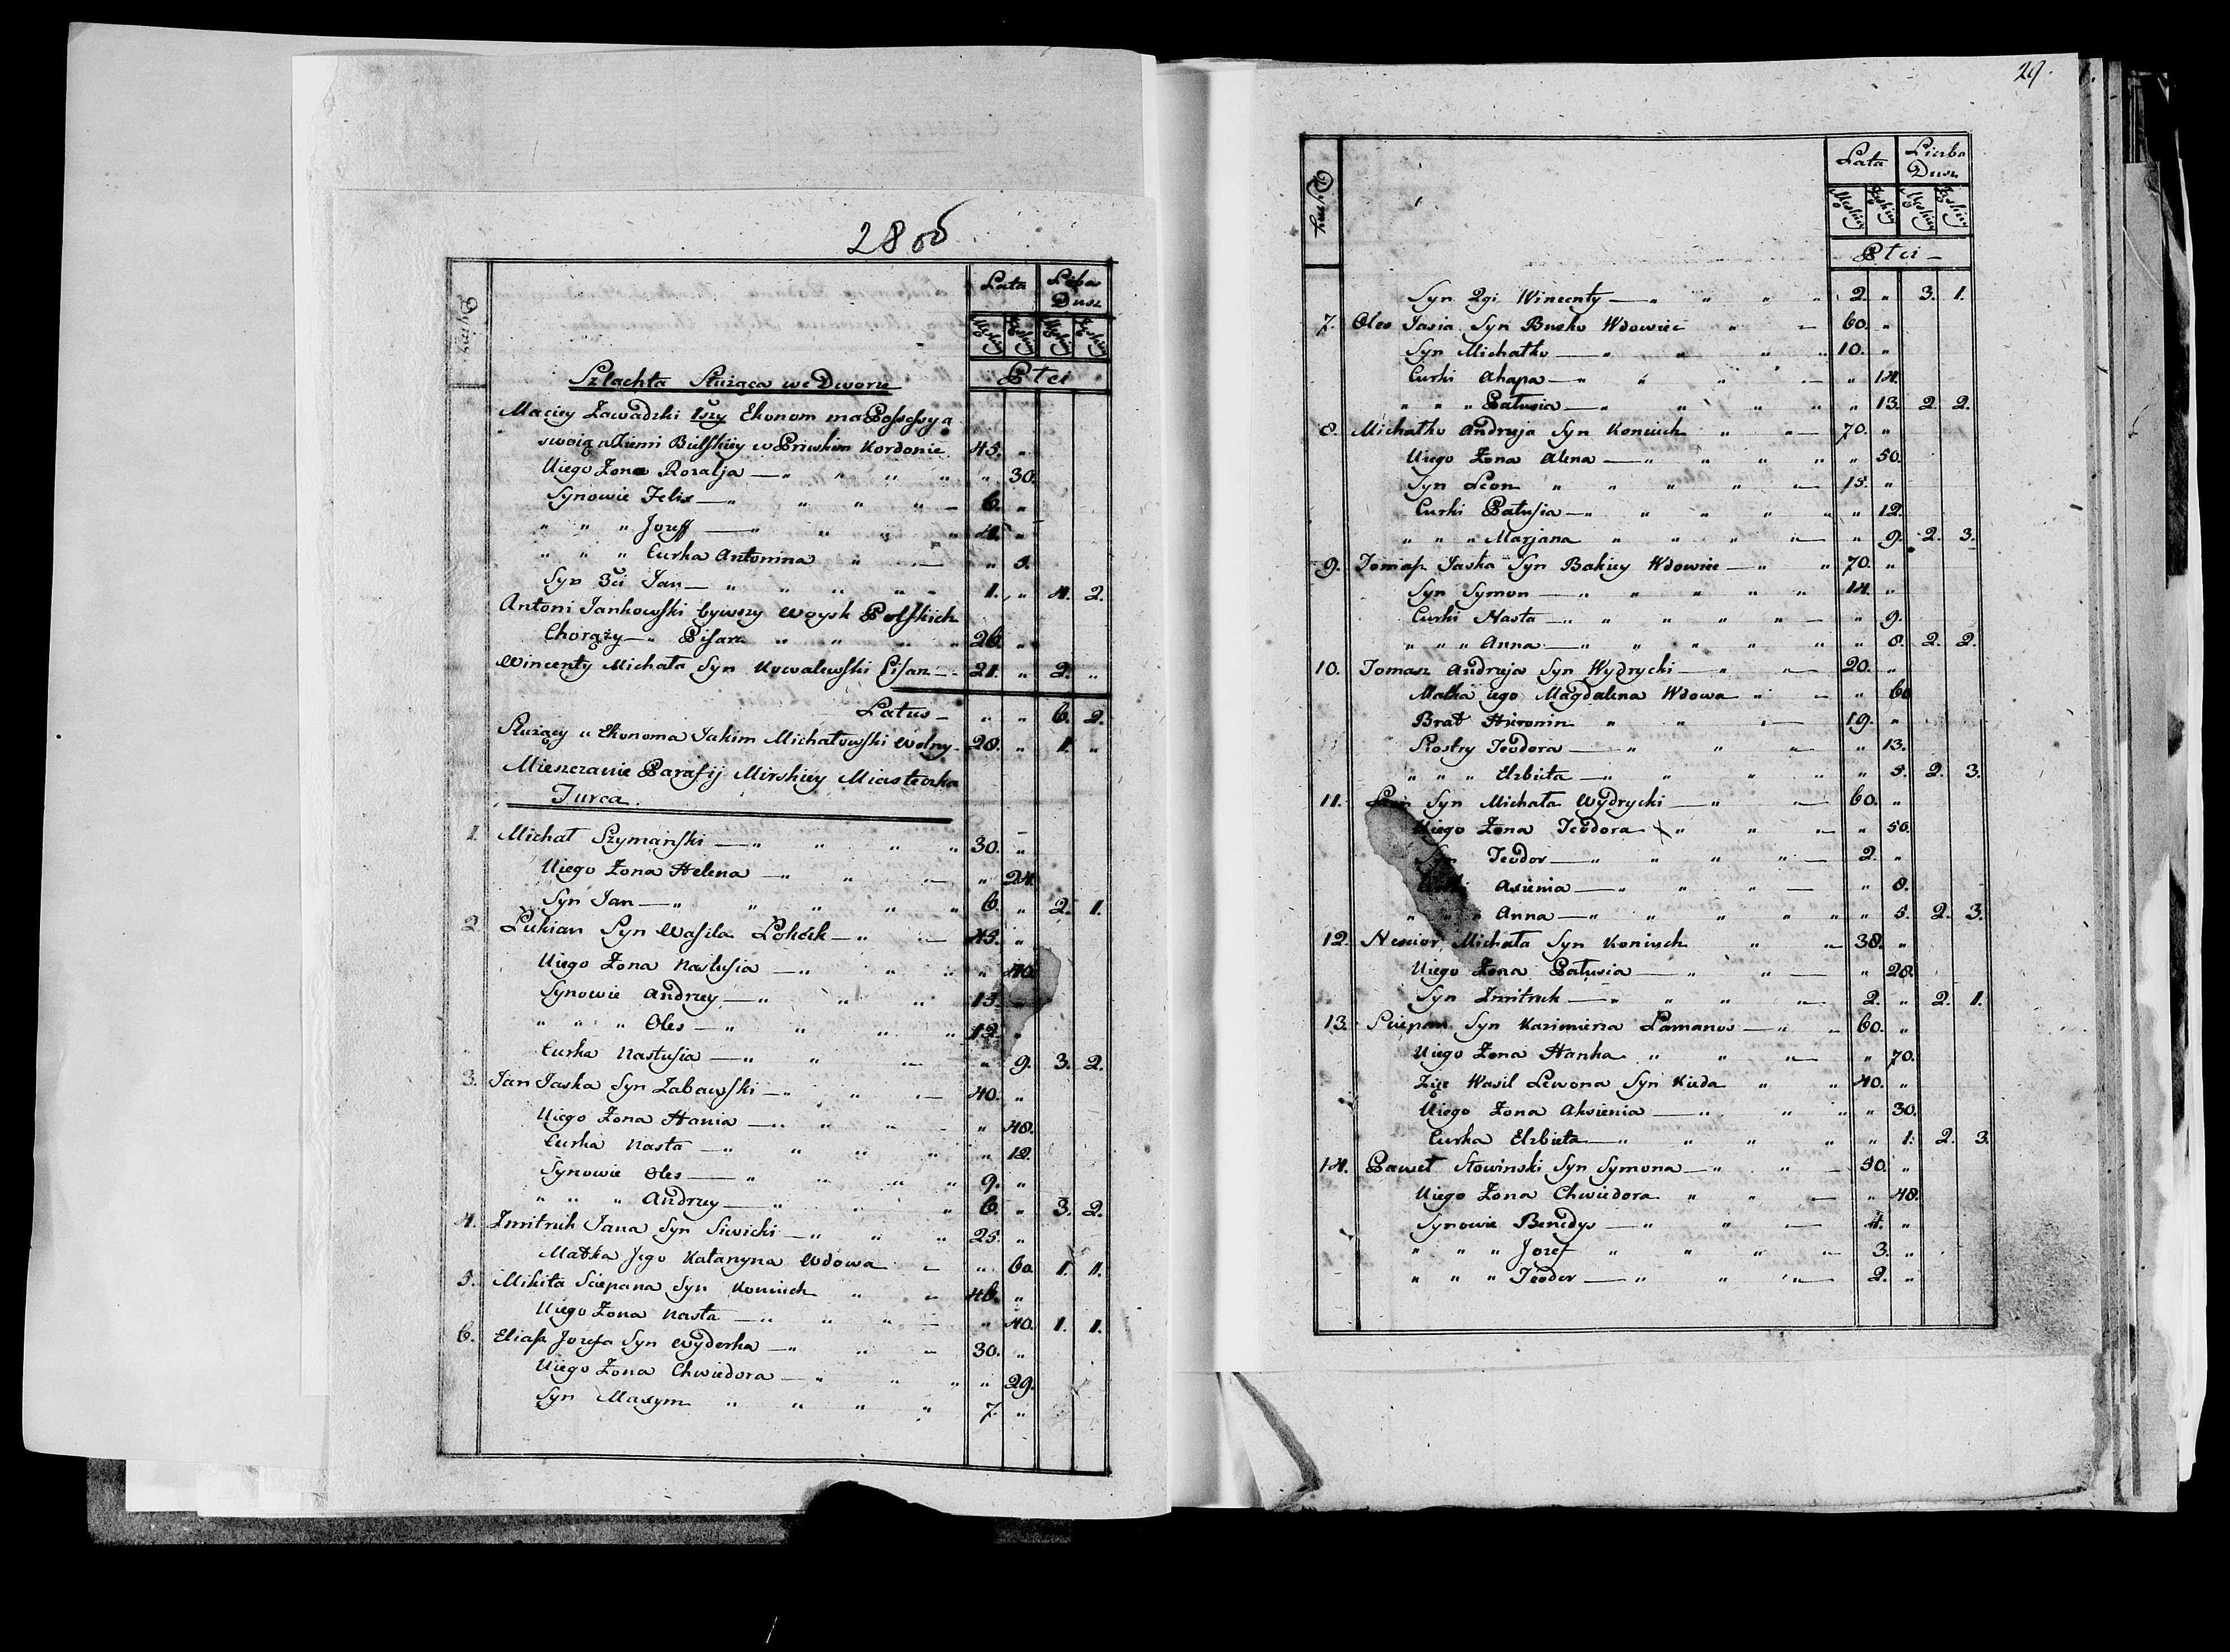 28 об
Dymy
Lata Liba Dusz
Męskiey Żeńskiey Męskiey Żeńskiey
Płci
Szlachta Służąca we Dworze
Maciey Zawadzki 1szy Ekonom ma Possessyą
swoią w Ziemi Bielskiey w Pruskim Kordonie 45. „
Uiego Żona Rozalja — „ „ „ „ „ 30.
Synowie Felix — „ „ „ „ — 6. „
„ „ „ Jozeff — „ „ „ „ 4. „
„ „ „ Curka Antonina „ „ — „ 5.
Syn 3ci Jan — „ „ „ „ „ 1. „ 4. 2.
Antoni Jankowski bywszy Woysk Polskich
Chorąży — „ Pisarz „ „ „ „ 26. „
Wincenty Michała Syn Kowalewski Pisarz — 21. „ 2. „
Latus — „ „ 6. 2.
Służący u Ekonoma Jakim Michałowski Wolny — 28. „ 1. „
Mieszczanie Parafij Mirskiey Miasteczka
Turca.
1. Michał Szymański — „ „ „ „ 30. „
Uiego Żona Helena — „ „ „ — „ 24.
Syn Jan — „ „ „ „ „ 6. „ 2. 1.
2. Łukian Syn Wasila — „ „ — 45. „
Uiego Żona Nastusia — „ „ „ „ 40.
Synowie Andrzey — „ „ „ 15. „
„ „ „ Oles — „ „ „ „ 12. „
Curka Nastusia — „ „ „ — „ 9. 3. 2.
3. Jan Jaska Syn Zabawski — „ „ „ — 40. „
Uiego Żona Hania — „ „ „ — „ 48.
Curka Nasta — „ „ „ „ „ 12.
Synowie Oles — „ „ „ „ 9. „
„ „ „ Andrzey — „ „ „ 6. „ 3. 2.
4. Zmitruk Jana Syn Siwicki — „ „ „ 25. „
Matka Jego Katarzyna Wdowa — „ 60 1. 1.
5. Mikita Sciepana Syn Koniuch „ „ 46. „
Uiego Żona Nasta — „ „ „ — „ 40. 1. 1.
6. Eliasz Jozefa Syn Wyderka — „ „ „ 30. „
Uiego Żona Chwiedora — „ „ „ „ 29.
Syn Maxym „ „ „ „ 7. „
29.
Dymy
Lata Liczba Dusz
Męskiey Żeńskiey Męskiey Żeńskiey
Płci —
Syn 2gi Wincenty — „ „ „ „ 2. „ 3. 1.
7. Oles Jasia Syn Busko Wdowiec „ — 60. „
Syn Michałko — „ „ „ „ 10. „
Curki Ahapa — „ „ „ „ — „ 14.
„ „ „ Patusia — „ „ „ „ „ 13. 2. 2.
8. Michałko Andrzeja Syn Koniuch „ „ — 70. „
Uiego Żona Alena — „ „ „ „ „ 50.
Syn Leon „ „ „ „ „ — 15. „
Curki Patusia — „ „ „ „ „ „ 12.
„ „ „ Marjana „ „ „ „ — „ 9. 2. 3.
9. Tomasz Jaska Syn Bakiey Wdowiec — „ „ 70. „
Syn Symon — „ „ „ „ „ 14. „
Curki Nasta — „ „ „ „ — „ 9.
„ „ „ Anna — „ „ „ „ „ „ 8. 2. 2.
10. Tomasz Andrzeja Syn Wydrycki — „ „ — 20. „
Matka iego Magdalena Wdowa „ — „ 60
Brat Hieronim „ „ „ — 19. „
Siostry Teodora — „ „ „ — „ 13.
„ „ „ Elzbieta — „ „ „ „ „ 5. 2. 3.
11. Syn Michała Wydrycki — „ „ — 60. „
Uiego Żona Teodora „ „ „ — „ 50.
Syn Teodor — „ „ „ „ — 2. „
Curki Axienia — „ „ „ — „ 8.
„ „ „ Anna — „ „ „ „ „ 5. 2. 3.
12. Nescior Michała Syn Koniuch „ „ — 38. „
Uiego Żona Patusia — „ „ — „ 28.
Syn Zmitruk — „ „ „ „ — 2. „ 2. 1.
13. Sciepan Syn Kazimierza Lamanos — „ „ 60. „
Uiego Żona Hanka „ „ „ — „ 70.
Zięć Wasil Lewona Syn Kieda „ „ 40. „
Uiego Żona Aksienia — „ „ „ „ 30.
Curka Elzbieta — „ „ „ „ „ 1. 2. 3.
14. Paweł Słowinski Syn Symona — „ „ — 50. „
Uiego Żona Chwiedora „ „ — „ 48.
Synowie Benedys — „ „ „ — 4. „
„ „ „ Jozef „ „ „ „ — 3. „
„ „ „ Teodor — „ „ „ — 2. „